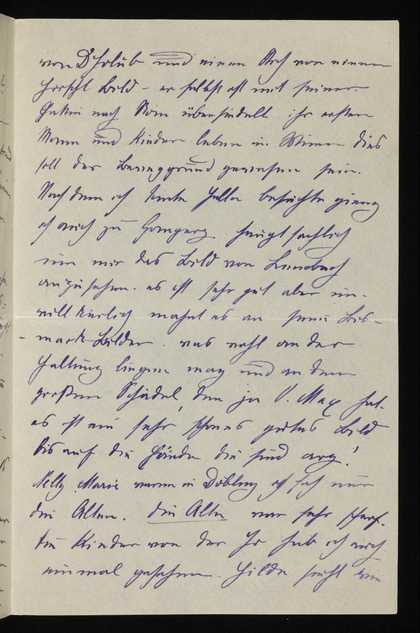 von D'Hlub und einen Kopf von einem
Bild – er selbst ist mit seiner
Gattin nach Rom übersiedelt ihr ersten
Mann und Kinder leben in Wien dies
soll der Beweggrund gewesen sein.
Nachdem ich Tante Hella besuchte gieng
ich auch zu Gomperz hauptsachlich
um mir das Bild von Lenbach
anzusehen. es ist sehr gut aber un-
willkürlich mahnt es an seine Bis-
mark Bilder. was wohl an der
Haltung liegen mag und an dem
großen Schädel, den ja O. Max hat.
es ist ein sehr schönes gutes Bild
bis auf die Hände die sind arg!
Nelly Marie waren in Döbling ich sah nur
die Alten. die Alte war sehr scharf.
die Kinder von der hab ich auch
einmal gesehen. Hilda sieht